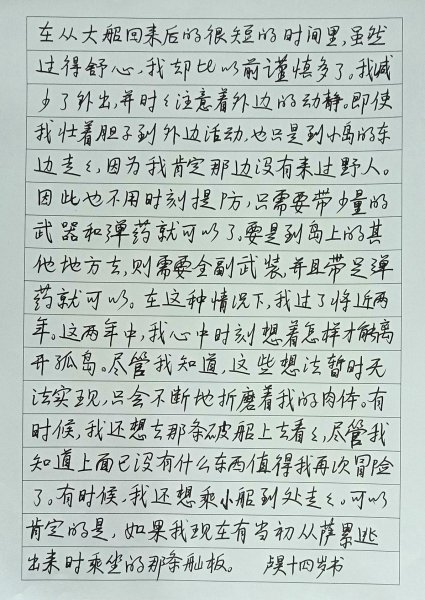 在从大船回来后的很短的时间里,虽然
过得舒心,我却比以前谨慎多了。我减
少了外出,并时々注意着外边的动静。即使
我壮着胆子到外边活动,也只是到小岛的东
边走々,因为我肯定那边没有来过野人。
因此也不用时刻提防,只需要带少量的
武器和弹药就可以了。要是到岛上的其
他地方去,则需要全副武装,并且带足弹
药就可以。在这种情况下,我过了将近两
年。这两年中,我心中时刻想着怎样才能离
开孤岛。尽管我知道,这些想法暂时无
法实现,只会不断地折磨着我的肉体。有
时候,我还想去那条破船上去看々,尽管我
知道上面已没有什么东西值得我再次冒险
了。有时候,我还想乘小船到处走々。可以
肯定的是,如果我现在有当初从萨累逃
出来时乘坐的那条舢板。 十四岁书